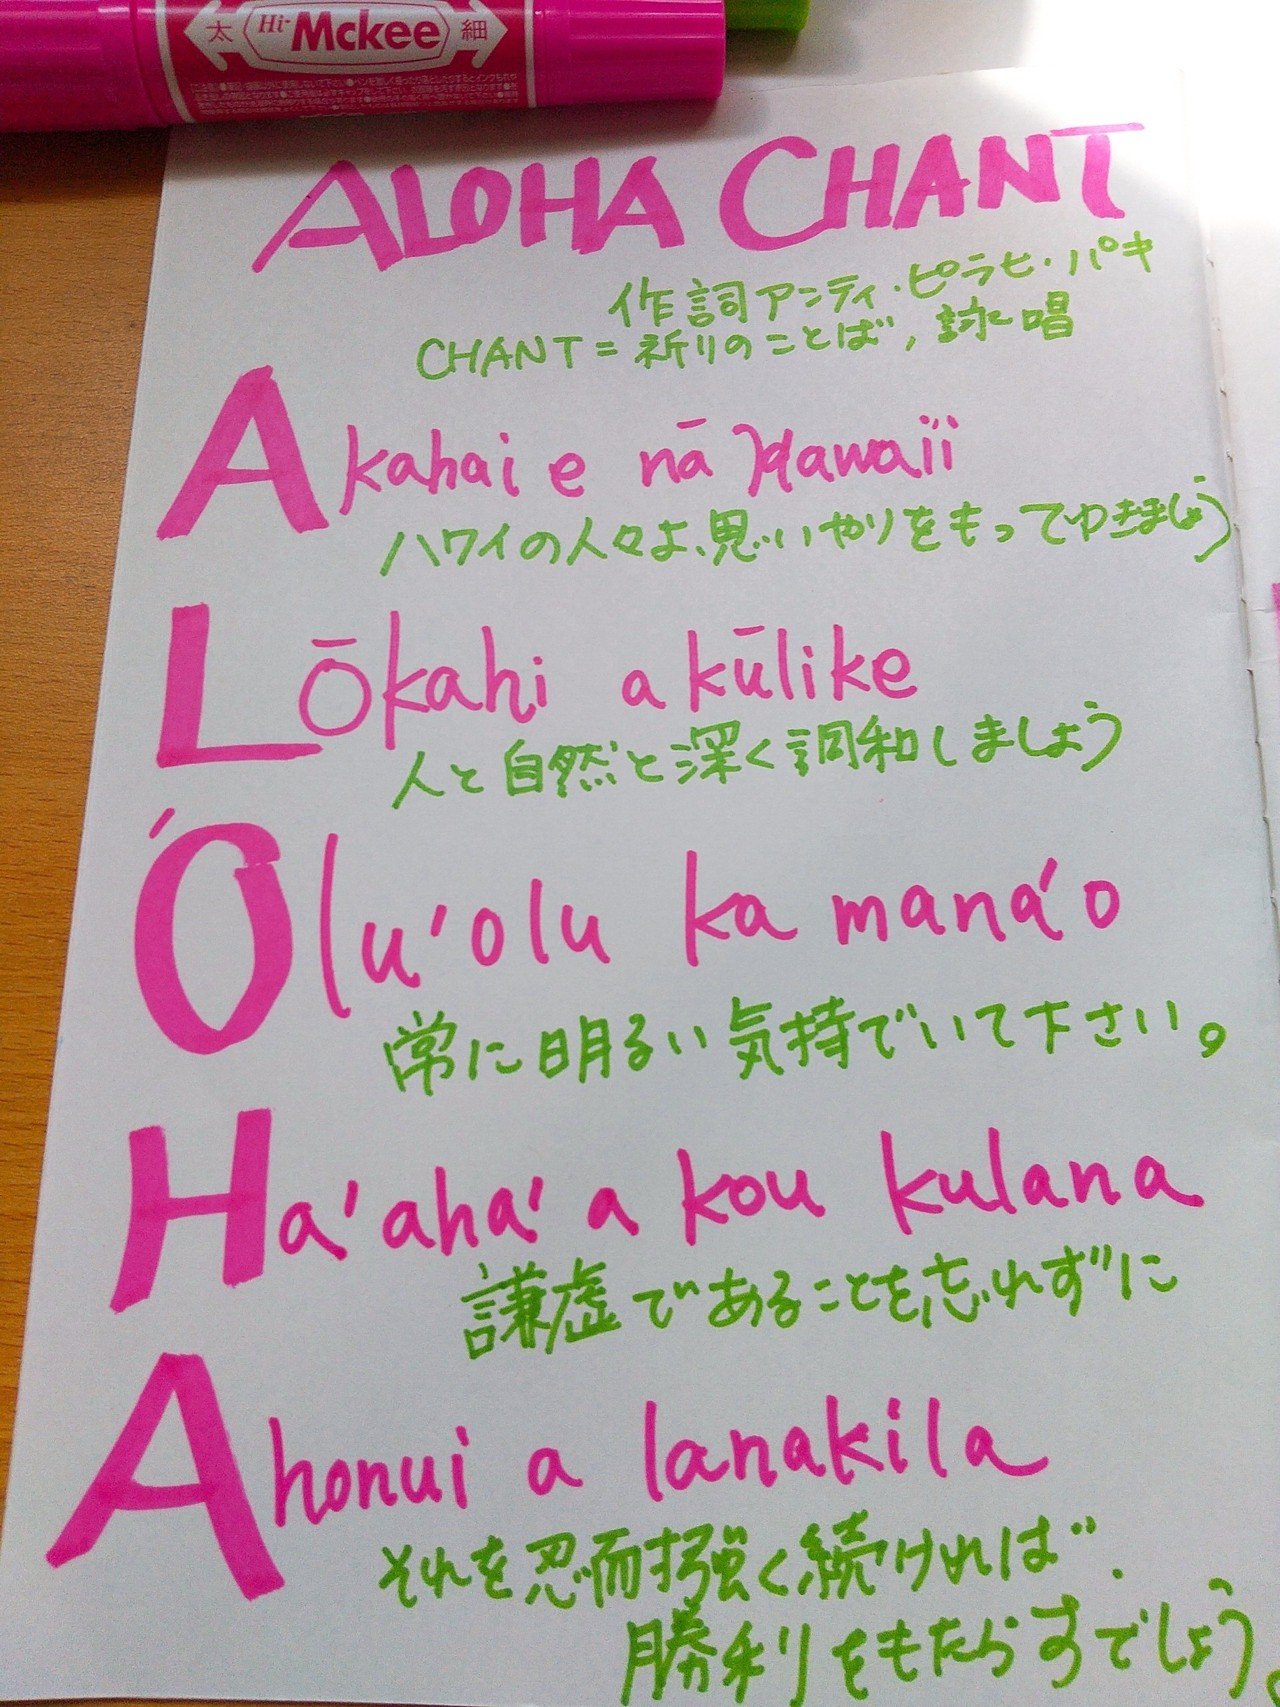 太 Hi-Mckee 細
ALOHA CHANT
作詞アンティ・ピラヒ・パキ
CHANT=祈りのことば,詠唱
Akahai e nā Hawaiʻi
ハワイの人々よ、思いやりをもってゆきましょう
Lōkahi a kūlike
人と自然と深く調和しましょう
'Olu'olu ka mana'o
常に明るい気持でいて下さい。
Ha'aha'a kou kulana
謙虚であることを忘れずに
Ahonui a lanakila
それを忍耐強く続ければ.
勝利をもたらすでしょう。